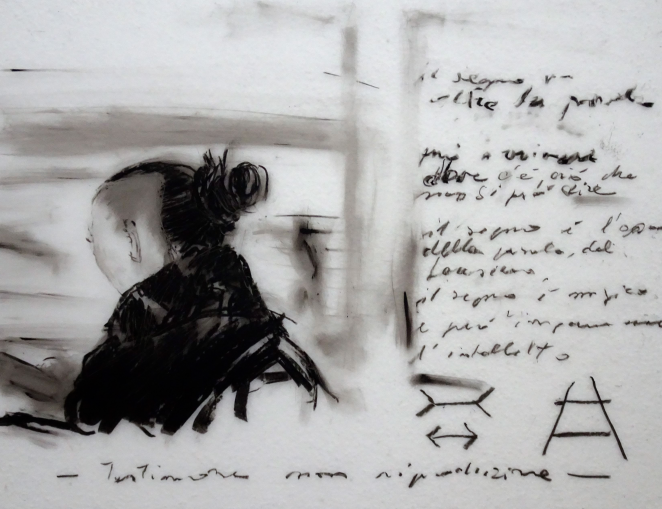 il segno va
oltre la parola
più o
dove c'è ciò che
non si può dire
il segno è l'
della parola, del
pensiero.
il segno è magico
e può
l'intelletto
— Testimone non riproduzione —